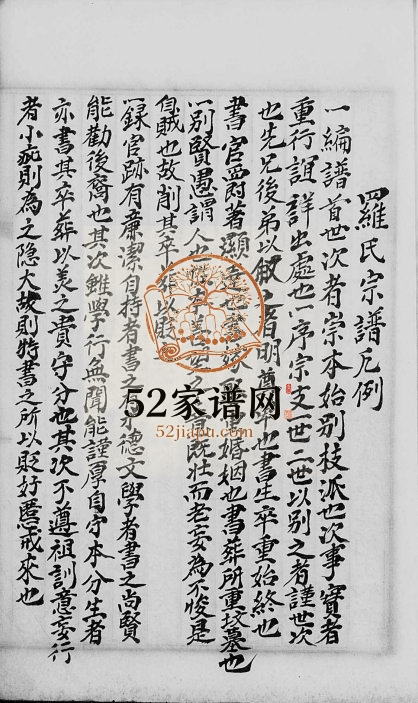 羅氏宗譜凡例
一編譜首世次者崇本始别枝派也次事實者
重行誼詳出處也一序宗支世二世以别之者謹世次
也先兄後弟以敘之者明尊卑也書生卒重始終也
書官爵著顯達也書嫁娶重婚姻也書葬所重坟墓也
以别賢愚謂人既壮而老妄為不悛是
自賊也故削其卒葬以貶
一錄官跡有廉潔自持者書之德文學者書之尚賢
能勸後裔也其次雖學行無聞能謹厚自守本分生者
亦書其卒葬以美之貴守分也其次不遵祖訓意妄行
者小疵則為之隐大故則特書之所以貶奸慝戒來也
52家谱网
52jiapu.com